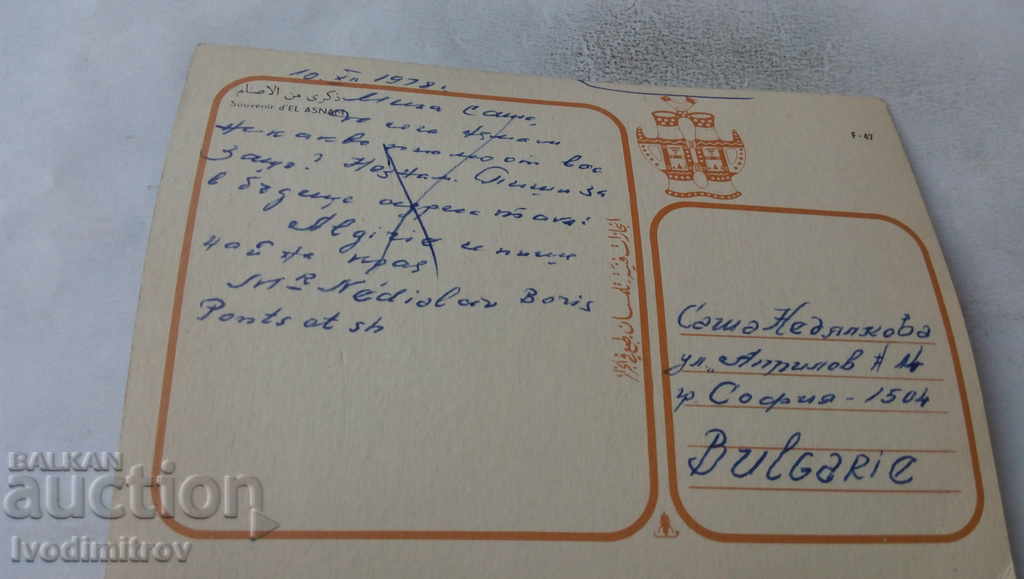 10 XII 1978.
ذكرى من الأصنام
Souvenir d'EL ASNAM
Мила Саше,
До сега нямам
никакво писмо от вас
Защо? Не знам. Пиши за
в бъдеще адреса така:
Algirie и пиши
най на края
MR Nédialkov Boris
Ponts et sh
F-47
Саша Недялкова
ул. Априлов № 14
гр София - 1504
BULGARIE
BALKAN
auction
Ivodimitrov